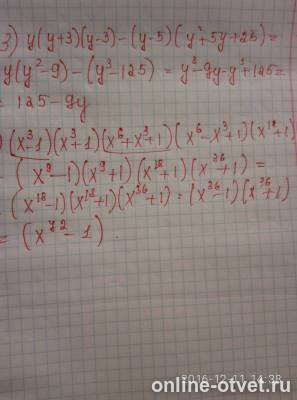 3) y(y+3)(y-3)-(y-5)(y²+5y+25)=
y(y²-9)-(y³-125)= y³-9y-y³+125=
= 125-9y
) (x³-1)(x³+1)(x⁶+x³+1)(x⁶-x³+1)(x¹⁸+1)
(x⁹-1)(x⁹+1)(x¹⁸+1)(x³⁶+1)=
(x¹⁸-1)(x¹⁸+1)(x³⁶+1)=(x³⁶-1)(x³⁶+1)
= (x⁷²-1)
2016-12-11 14:38
online-otvet.ru